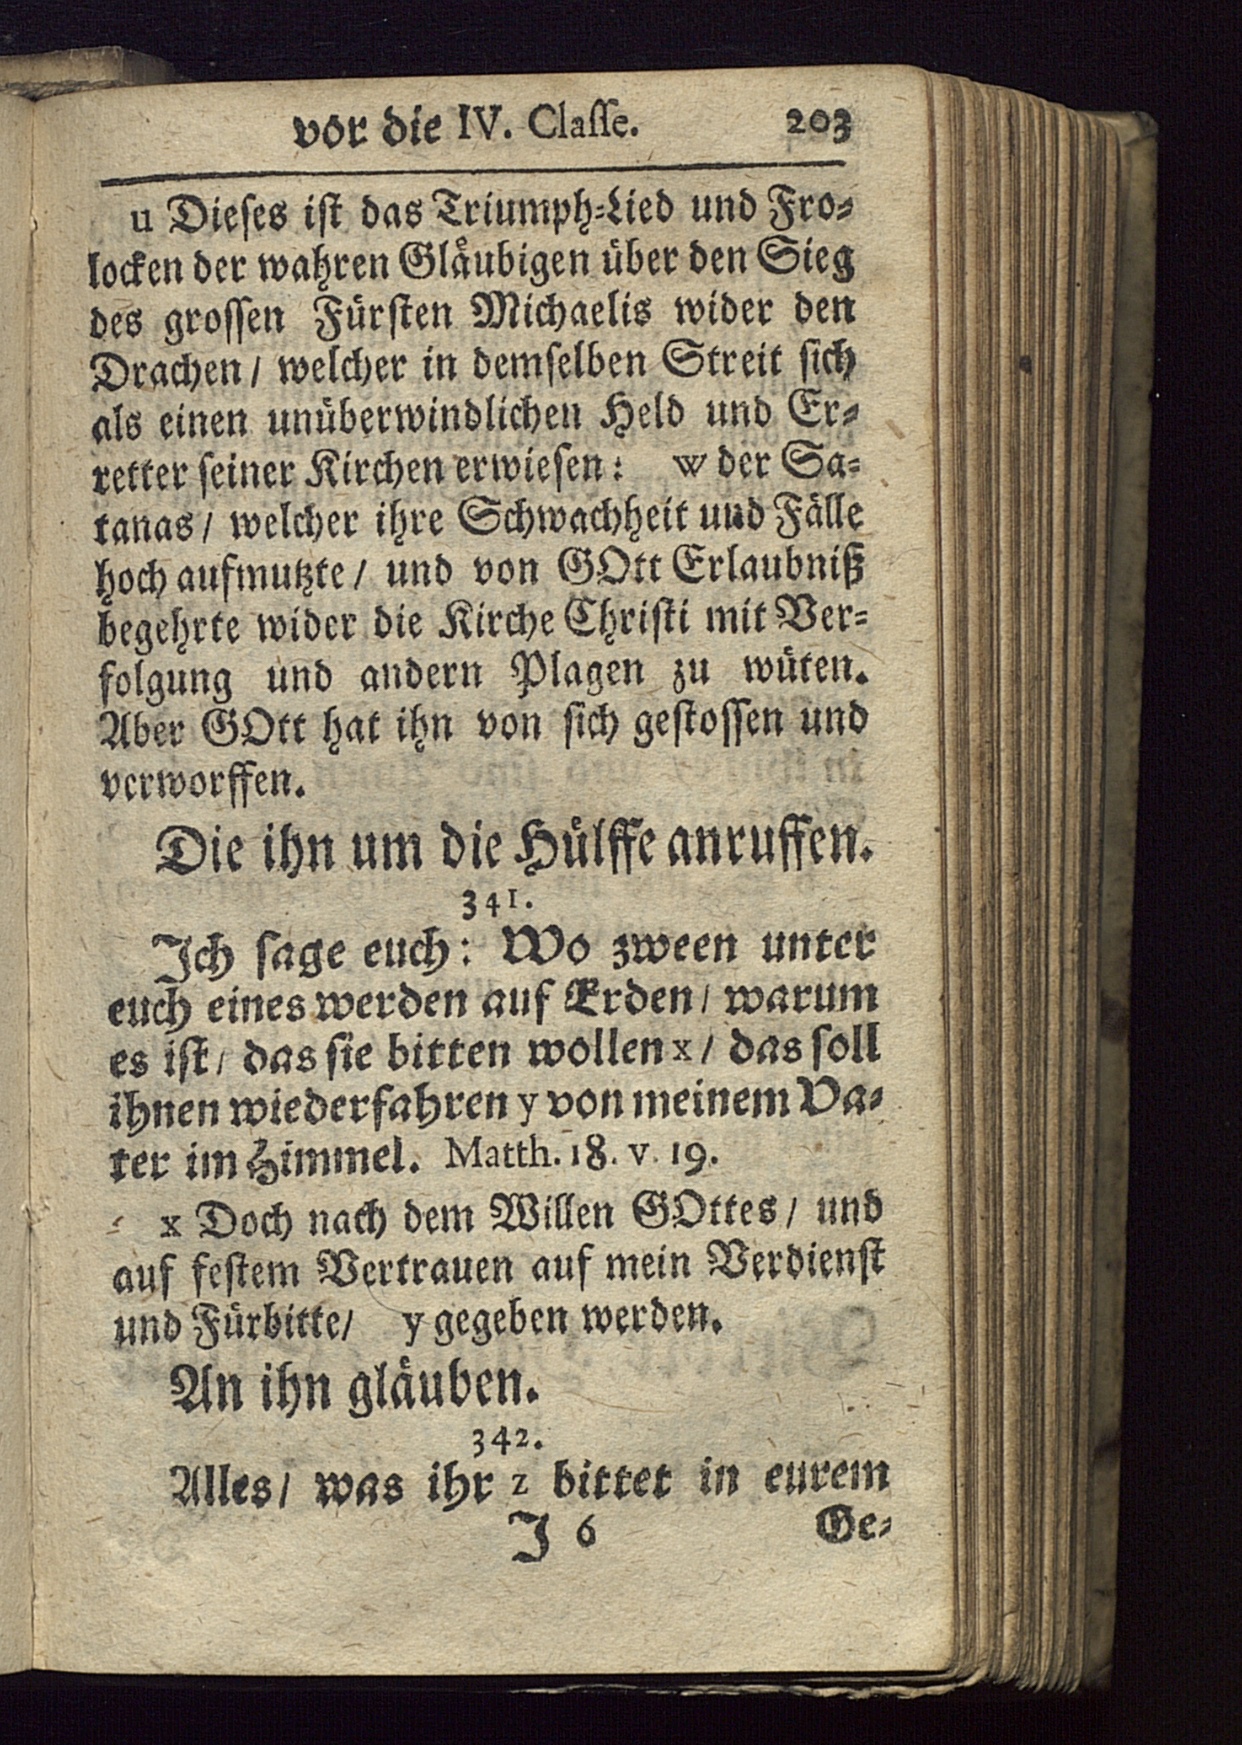 vor die IV. Classe. 203
u Dieses ist das Triumph-Lied und Fro-
locken der wahren Gläubigen über den Sieg
des grossen Fürsten Michaelis wider den
Drachen / welcher in demselben Streit sich
als einen unüberwindlichen Held und Er-
retter seiner Kirchen erwiesen: w der Sa-
tanas / welcher ihre Schwachheit und Fälle
hoch aufmutzte / und von GOtt Erlaubniß
begehrte wider die Kirche Christi mit Ver-
folgung und andern Plagen zu wüten.
Aber GOtt hat ihn von sich gestossen und
verworffen.
Die ihn um die Hülffe anruffen.
341.
Ich sage euch: Wo zween unter
euch eines werden auf Erden / warum
es ist / das sie bitten wollen x / das soll
ihnen wiederfahren y von meinem Va-
ter im Himmel. Matth. 18. v. 19.
x Doch nach dem Willen GOttes / und
auf festem Vertrauen auf mein Verdienst
und Fürbitte / y gegeben werden.
An ihn gläuben.
342.
Alles / was ihr z bittet in eurem
J 6 Ge-